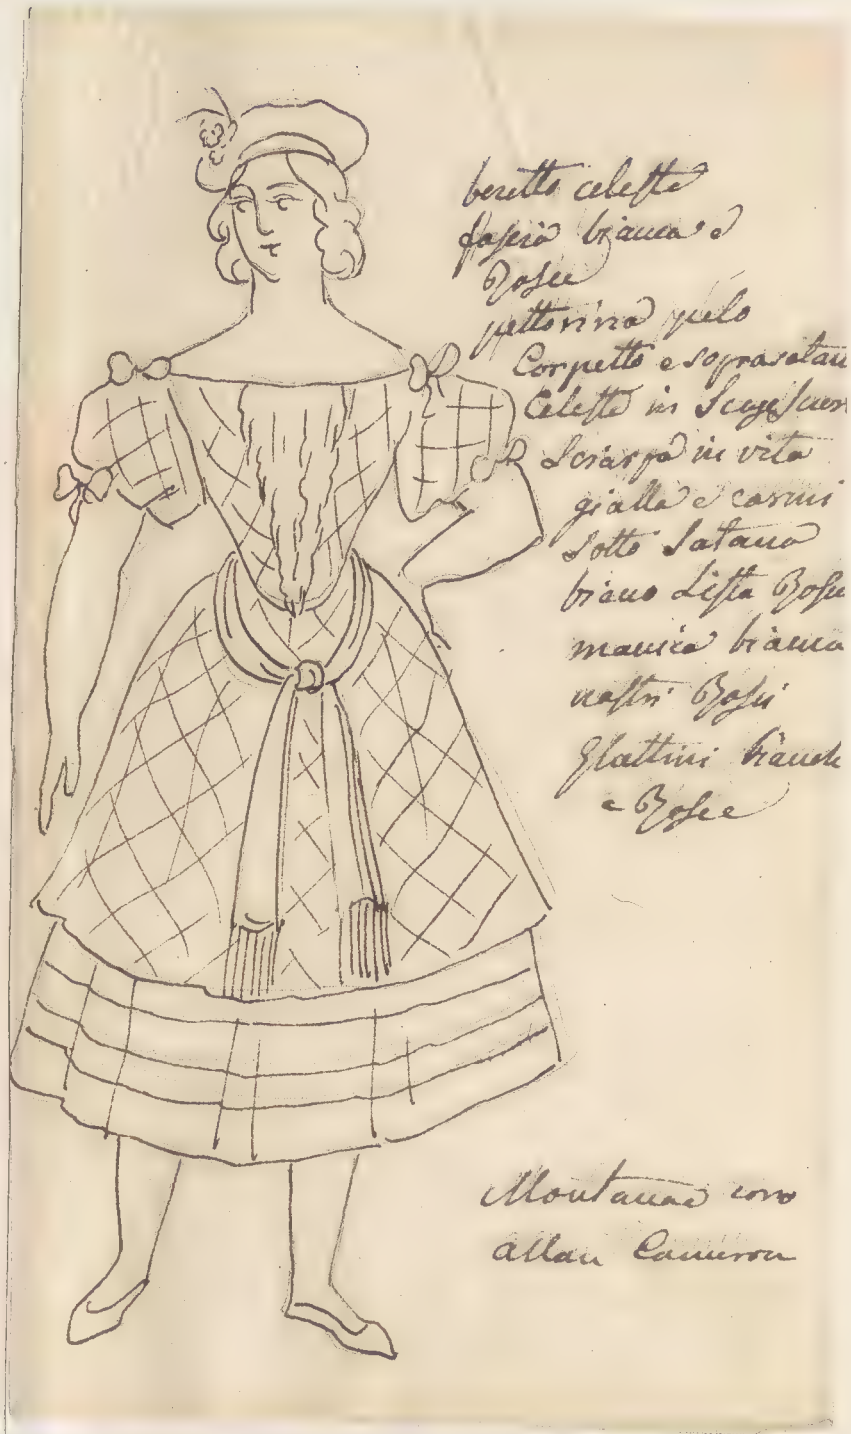 beretto celeste
fascia bianca e
Rosee
pettorina pelo
Corpetto e soprasotan
Celeste in
Sciarpa in vita
gialla e carmi
sotto Satana
bianc Lista Rose
manica bianca
nastri Rosei
Glattini bianch
e Rosee
Montanae coro
allan Cameron